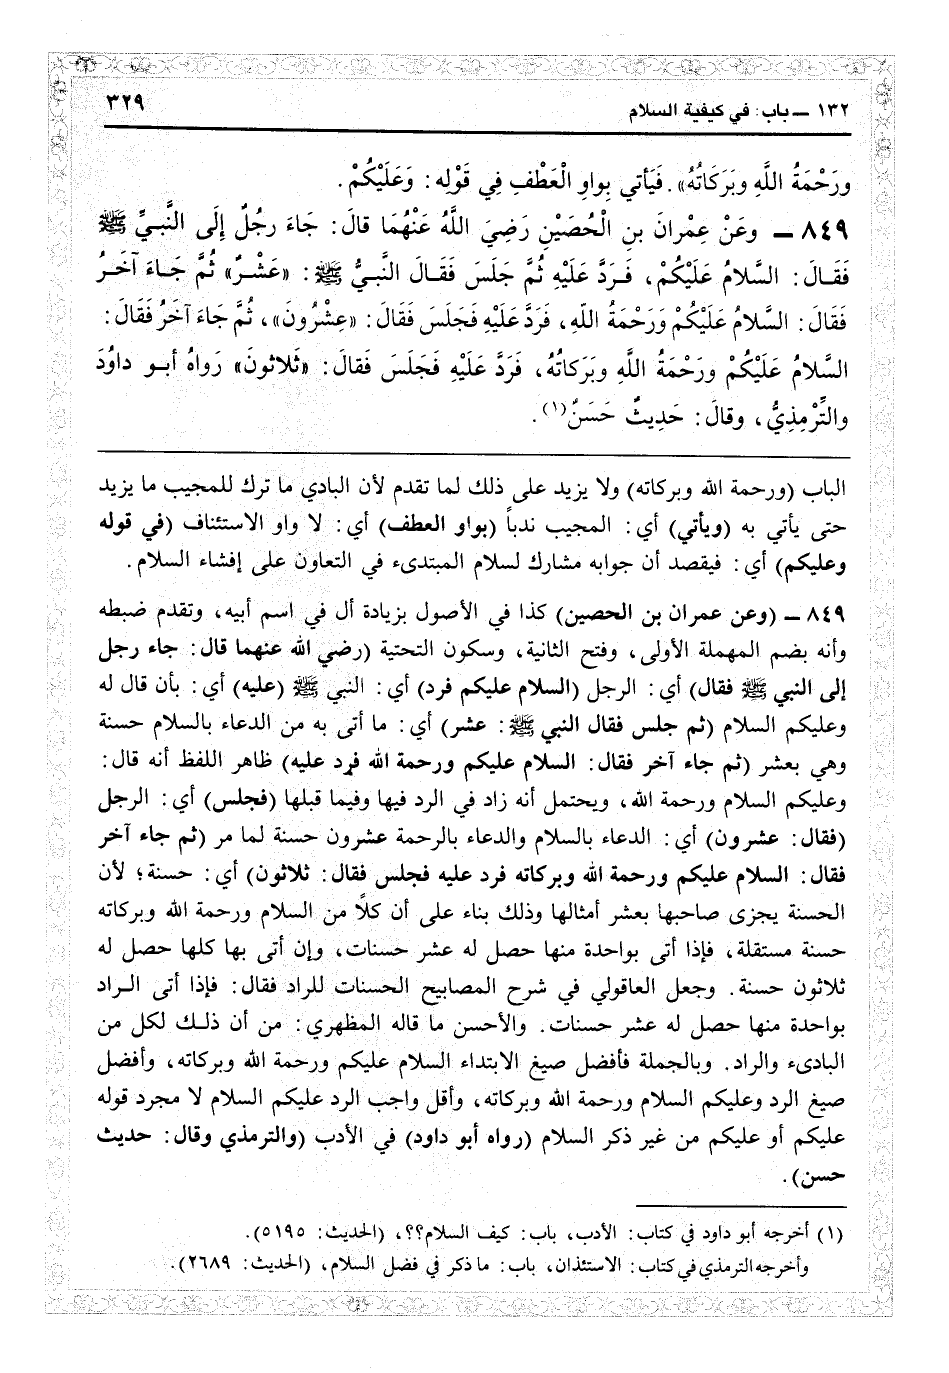 ١٣٢ ـ باب: في كيفية السلام ٣٢٩
ورَحْمَةُ اللَّهِ وبَرَكَاتُهُ». فَيَأتي بِواوِ الْعَطْفِ فِي قَوْلِه: وَعَلَيْكُمْ.
٨٤٩ ـ وعَنْ عِمْرانَ بنِ الْحُصَيْنِ رَضِيَ اللَّهُ عَنْهُمَا قالَ: جَاءَ رجُلٌ إلَى النَّبيِّ ﷺ
فَقَـالَ: السَّلامُ عَلَيْكُمْ، فَـرَدَّ عَلَيْهِ ثُمَّ جَلَسَ فَقَـالَ النَّبيُّ ﷺ: «عَشْـرٌ» ثُمَّ جَـاءَ آخَـرُ
فَقَالَ: السَّلامُ عَلَيْكُمْ وَرَحْمَةُ اللَّهِ، فَرَدَّ عَلَيْهِ فَجَلَسَ فَقَالَ: «عِشْرُونَ»، ثُمَّ جَاءَ آخَرُ فَقَالَ:
السَّلامُ عَلَيْكُمْ ورَحْمَةُ اللَّهِ وبَرَكَاتُهُ، فَرَدَّ عَلَيْهِ فَجَلَسَ فَقالَ: «ثَلاثونَ» رَواهُ أبـو داودَ
والتِّرْمِذِيُّ، وقالَ: حَدِيثٌ حَسَنٌ(١).
الباب (ورحمة الله وبركاته) ولا يزيد على ذلك لما تقدم لأن البادي ما ترك للمجيب ما يزيد
حتى يأتي به (ويأتي) أي: المجيب ندباً (بواو العطف) أي: لا واو الاستئناف (في قوله
وعليكم) أي: فيقصد أن جوابه مشارك لسلام المبتدىء في التعاون على إفشاء السلام.
٨٤٩ ـ (وعن عمران بن الحصين) كذا في الأصول بزيادة أل في اسم أبيه، وتقدم ضبطه
وأنه بضم المهملة الأولى، وفتح الثانية، وسكون التحتية (رضي الله عنهما قال: جاء رجل
إلى النبي ﷺ فقال) أي: الرجل (السلام عليكم فرد) أي: النبي ﷺ (عليه) أي: بأن قال له
وعليكم السلام (ثم جلس فقال النبي ﷺ: عشر) أي: ما أتى به من الدعاء بالسلام حسنة
وهي بعشر (ثم جاء آخر فقال: السلام عليكم ورحمة الله فرد عليه) ظاهر اللفظ أنه قال:
وعليكم السلام ورحمة الله، ويحتمل أنه زاد في الرد فيها وفيما قبلها (فجلس) أي: الرجل
(فقال: عشرون) أي: الدعاء بالسلام والدعاء بالرحمة عشرون حسنة لما مر (ثم جاء آخر
فقال: السلام عليكم ورحمة الله وبركاته فرد عليه فجلس فقال: ثلاثون) أي: حسنة؛ لأن
الحسنة يجزى صاحبها بعشر أمثالها وذلك بناء على أن كلاً من السلام ورحمة الله وبركاته
حسنة مستقلة، فإذا أتى بواحدة منها حصل له عشر حسنات، وإن أتى بها كلها حصل له
ثلاثون حسنة. وجعل العاقولي في شرح المصابيح الحسنات للراد فقال: فإذا أتى الـراد
بواحدة منها حصل له عشر حسنات. والأحسن ما قاله المظهري: من أن ذلـك لكل من
البادىء والراد. وبالجملة فأفضل صيغ الابتداء السلام عليكم ورحمة الله وبركاته، وأفضل
صيغ الرد وعليكم السلام ورحمة الله وبركاته، وأقل واجب الرد عليكم السلام لا مجرد قوله
عليكم أو عليكم من غير ذكر السلام (رواه أبو داود) في الأدب (والترمذي وقال: حديث
حسن).
(١) أخرجه أبو داود في كتاب: الأدب، باب: كيف السلام؟؟، (الحديث: ٥١٩٥).
وأخرجه الترمذي في كتاب: الاستئذان، باب: ما ذكر في فضل السلام، (الحديث: ٢٦٨٩).